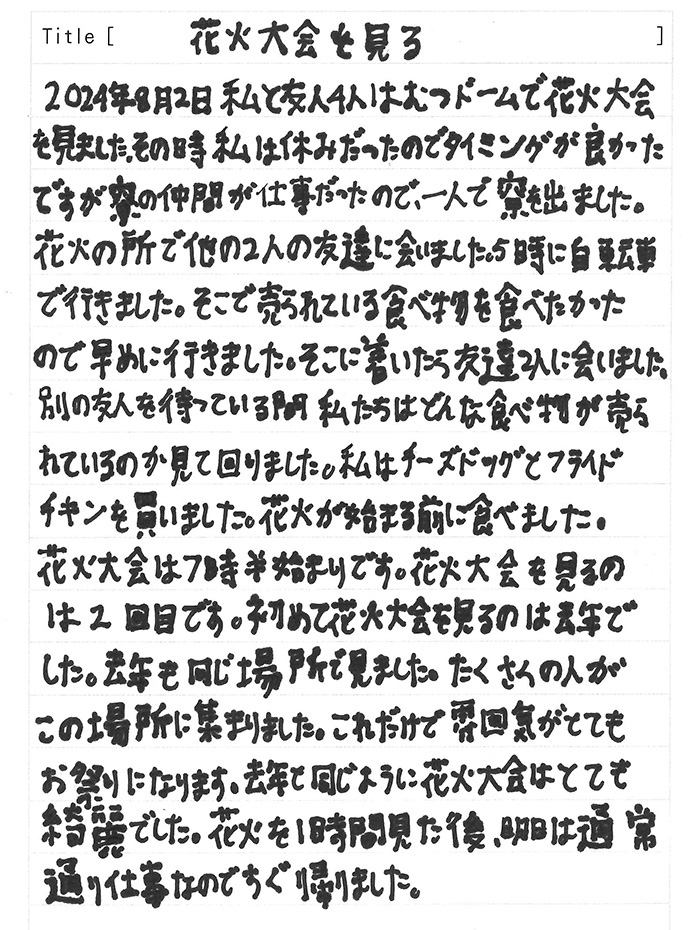 Title [ 花火大会を見る ]
2024年8月2日 私と友人4人はむつドームで花火大会
を見ました。その時 私は休みだったのでタイミングが良かった
ですが寮の仲間が仕事だったので、一人で寮を出ました。
花火の所で他の2人の友達に会いました。5時に自転車
で行きました。そこで売られている食べ物を食べたかった
ので早めに行きました。そこに着いたら友達2人に会いました。
別の友人を待っている間 私たちはどんな食べ物が売ら
れているのか見て回りました。私はチーズドッグとフライド
チキンを買いました。花火が始まる前に食べました。
花火大会は7時半始まりです。花火大会を見るの
は2回目です。初めて花火大会を見るのは去年で
した。去年も同じ場所で見ました。たくさんの人が
この場所に集まりました。これだけで雰囲気がとても
お祭りになります。去年と同じように花火大会はとても
綺麗でした。花火を1時間見た後、明日は通常
通り仕事なのですぐ帰りました。